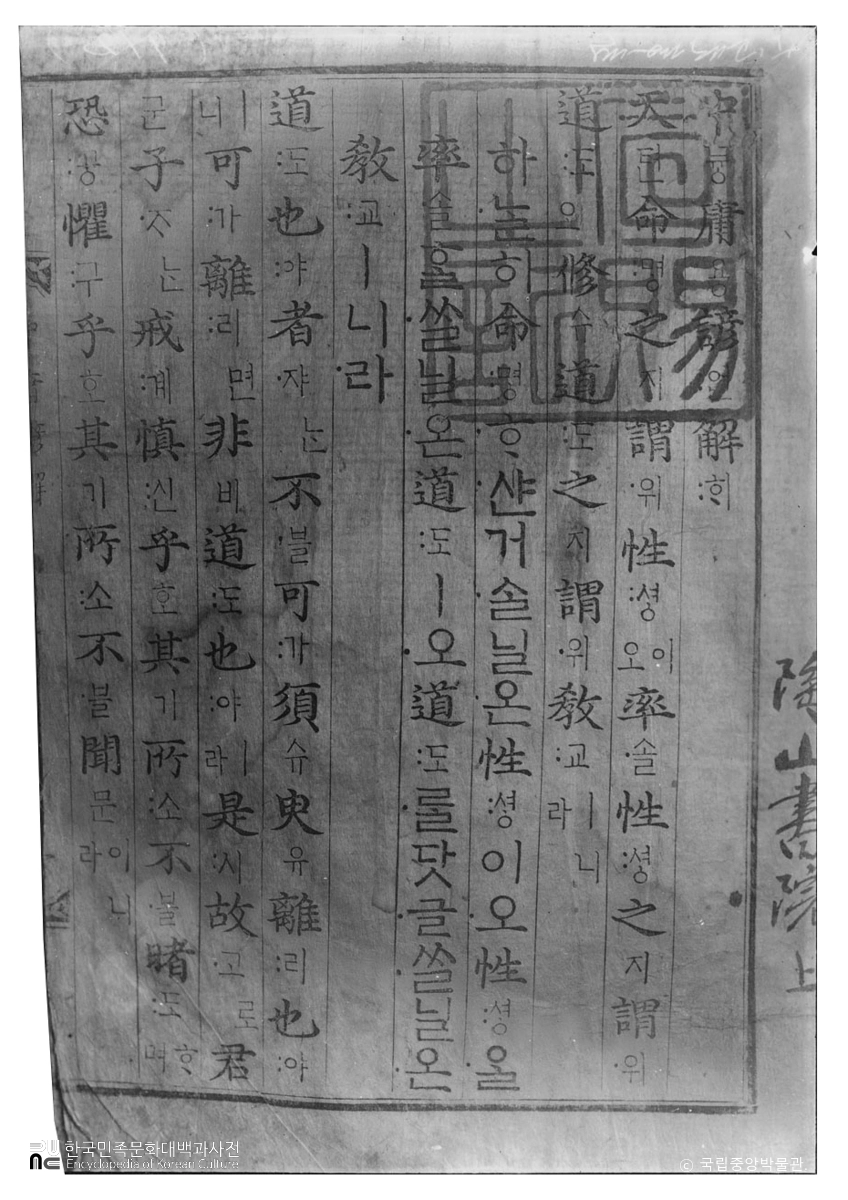 中듕庸용諺언解ᄒᆡ
天텬命명之지謂위性셩이오率솔性셩之지謂위
道도ㅣ오修슈道도之지謂위敎교ㅣ니라
하ᄂᆞᆯ히命명ᄒᆞ샨거ᄉᆞᆯ닐온性셩이오性셩ᄋᆞᆯ
率솔ᄒᆞᆯᄊᆞᆯ닐온道도ㅣ오道도ᄅᆞᆯ닷글ᄊᆞᆯ닐온
敎교ㅣ니라
道도也야者쟈ᄂᆞᆫ不블可가須슈臾유離리也야
ㅣ니可가離리면非비道도也야ㅣ라是시故고로君
군子ᄌᆞᄂᆞᆫ戒계愼신乎호其기所소不블睹도ᄒᆞ며
恐공懼구乎호其기所소不블聞문이니라
陶山書院上
한국민족문화대백과사전
Encyclopedia of Korean Culture
© 국립중앙박물관